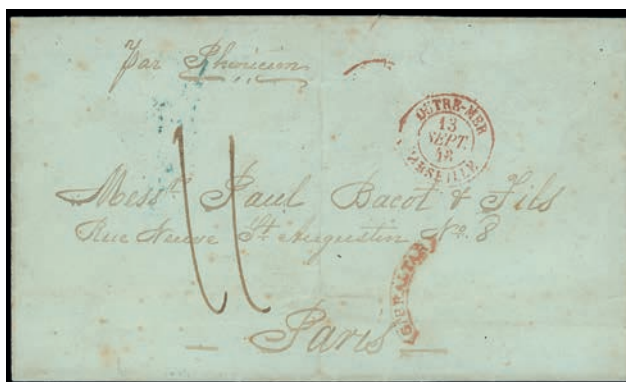 par Phénicien
OUTRE-MER
13
SEPT.
48
MARSEILLE
11
Messrs Paul Bacot & Fils
Rue Neuve St Augustin No. 8
GIBRALTAR
Paris